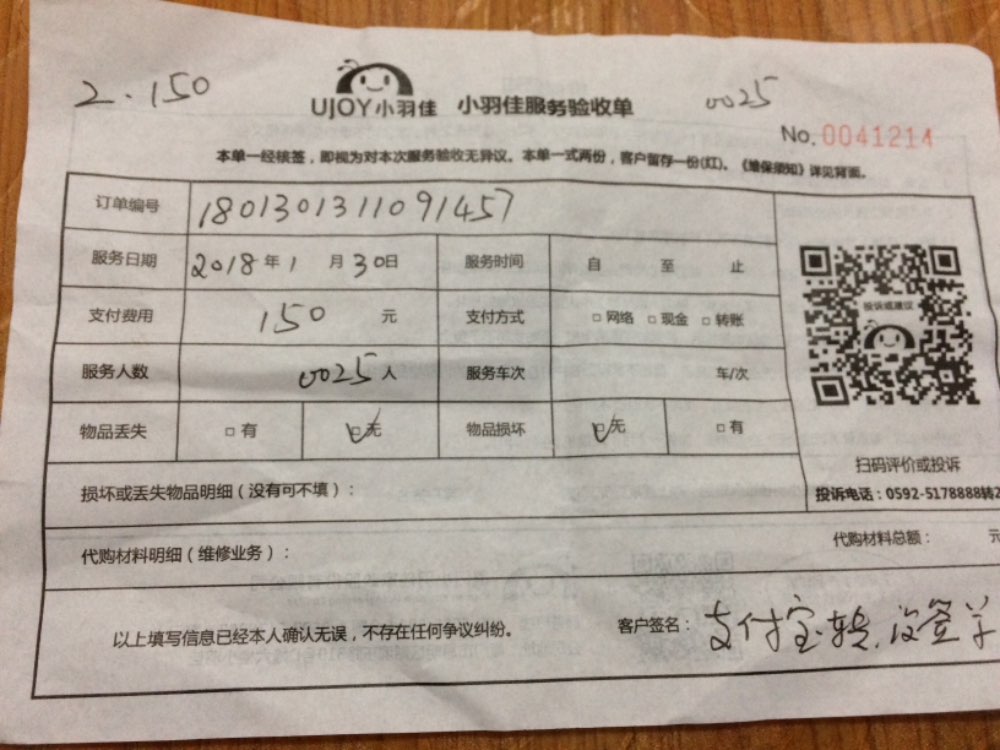 2.150
UJOY小羽佳 小羽佳服务验收单
0025
No.0041214
本单一经核签，即视为对本次服务验收无异议。本单一式两份，客户暂存一份(红)。《维保须知》详见背面。
订单编号 1801301311091457
服务日期 2018年1月30日 服务时间 自 至 止
支付费用 150元 支付方式 □网络 □现金 □转账
服务人数 0025人 服务车次 车/次
物品丢失 □有 ☑无 物品损坏 ☑无 □有
投诉或建议
扫码评价或投诉
投诉电话：0592-5178888转2
损坏或丢失物品明细（没有可不填）：
代购材料明细（维修业务）： 代购材料总额： 元
以上填写信息已经本人确认无误，不存在任何争议纠纷。 客户签名：支付宝转.没签单